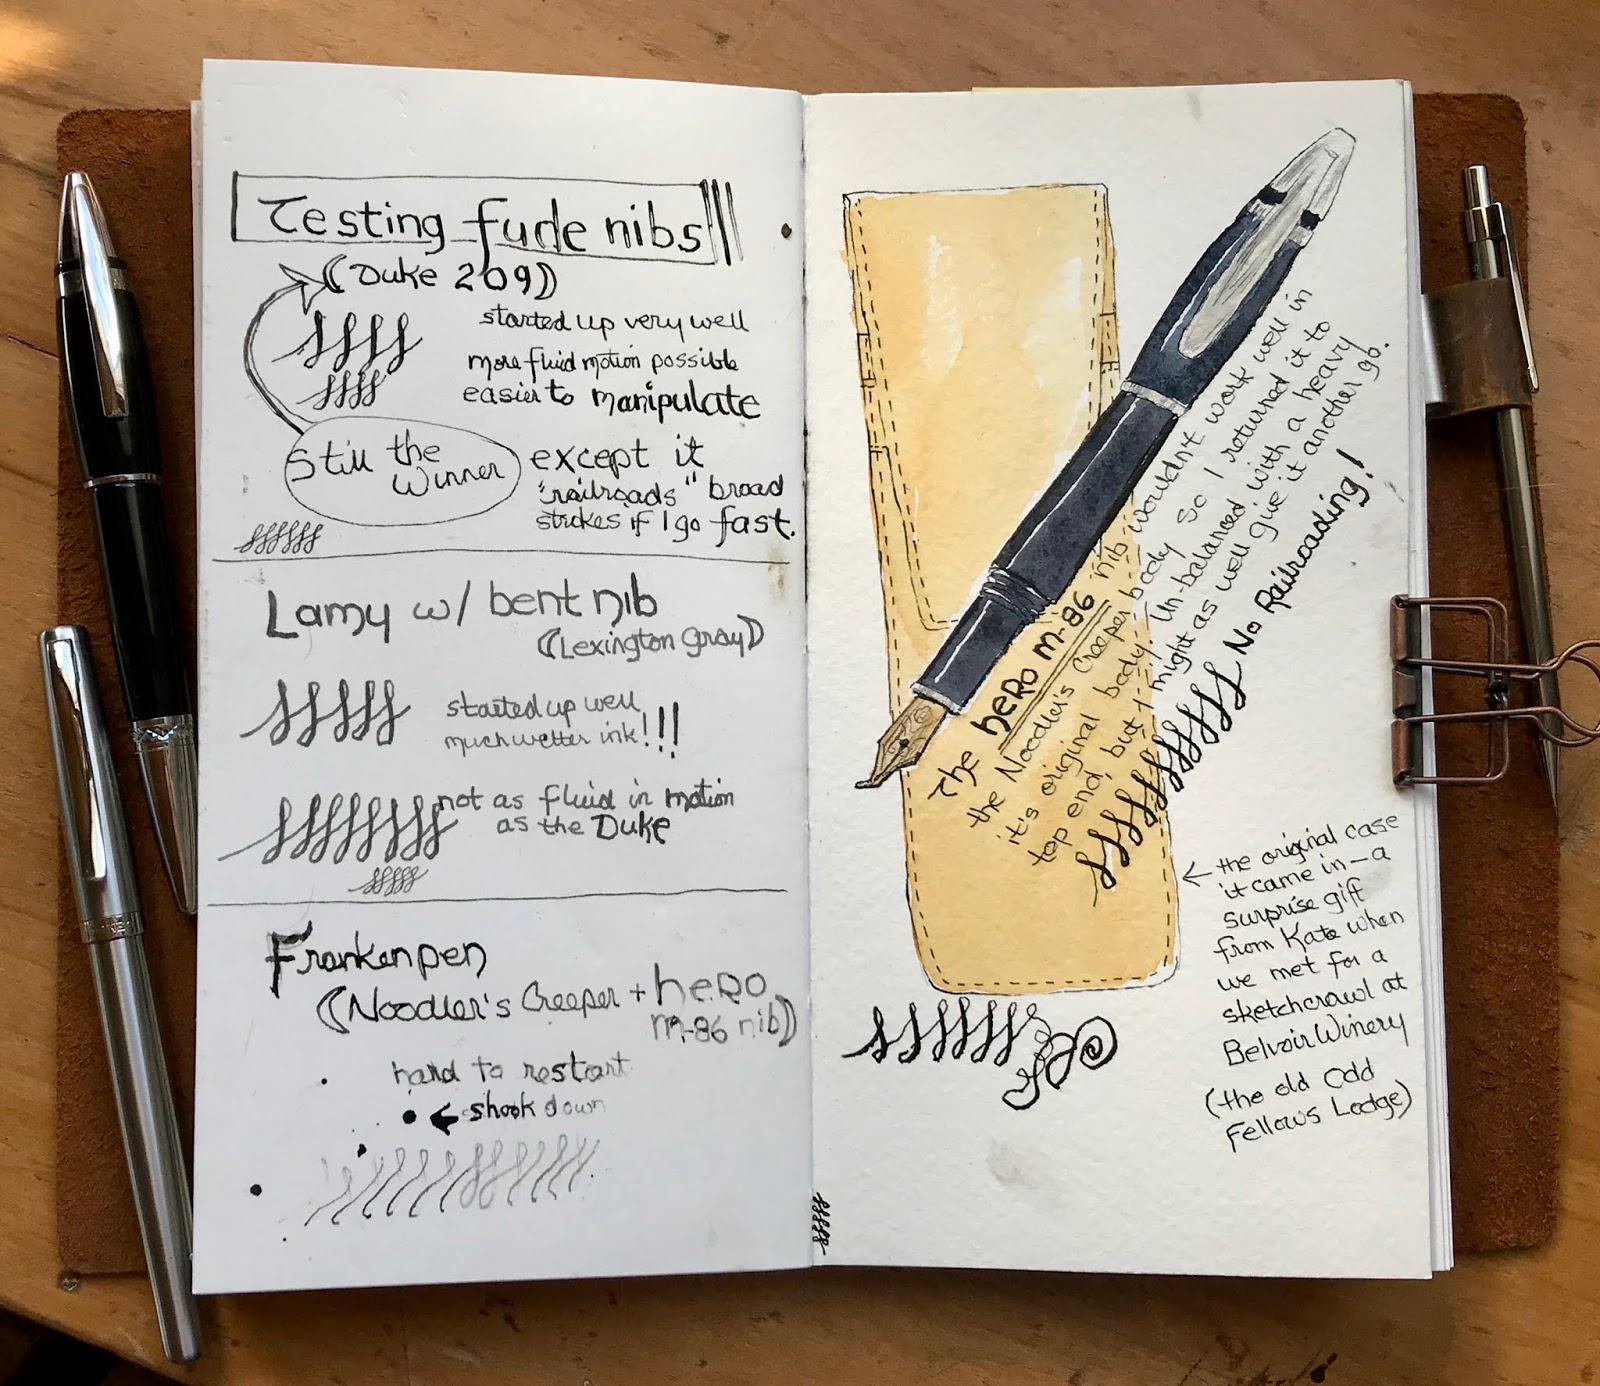 Testing fude nibs
(Duke 209)
started up very well
more fluid motion possible
easier to manipulate
Still the
Winner
except it
"railroads" broad
strokes if I go fast.
Lamy w/ bent nib
(Lexington Gray)
started up well
much wetter ink!!!
not as fluid in motion
as the Duke
Frankenpen
(Noodler's Creeper + hero
m-86 nib)
hard to restart
shook down
The hero m-86 nib wouldn't work well in
the Noodler's Creeper body so I returned it to
it's original body. Un-balanced with a heavy
top end, but I might as well give it another go.
No Railroading!
the original case
it came in – a
surprise gift
from Kate when
we met for a
sketchcrawl at
Belvoir Winery
(the old Odd
Fellows Lodge)